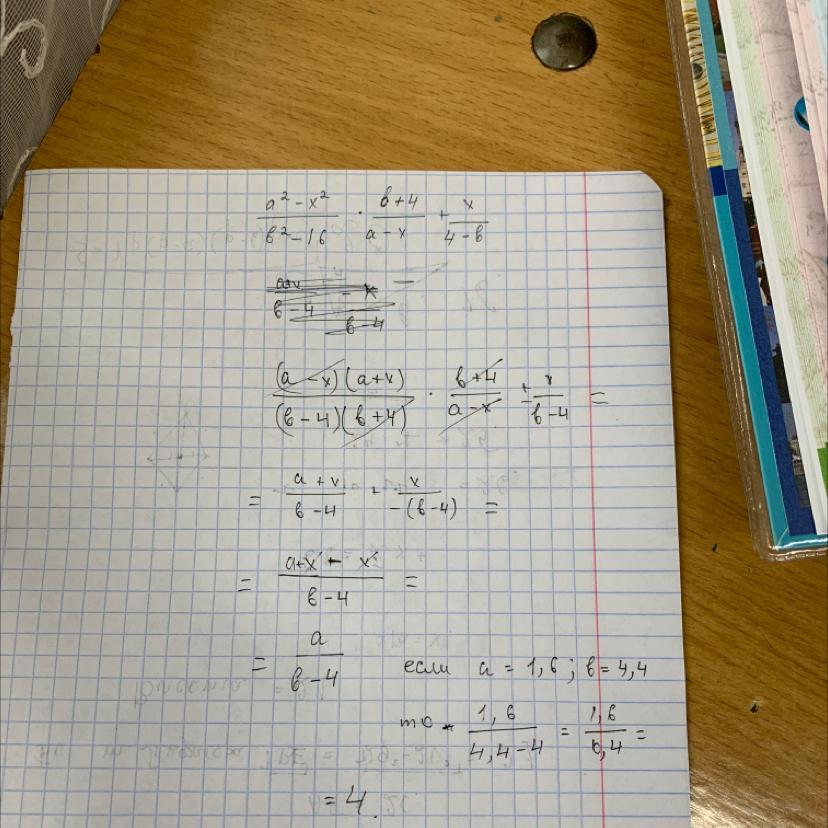 a² - x² / в² - 16 · в + 4 / a - x + x / 4 - в
a+x / в - 4 - x / в - 4
(a - x)(a + x) / (в - 4)(в + 4) · в + 4 / a - x ± x / в - 4 =
= a + x / в - 4 + x / -(в - 4) =
= a + x - x / в - 4 =
= a / в - 4 если a = 1,6 ; в = 4,4
то 1,6 / 4,4 - 4 = 1,6 / 0,4 =
= 4.